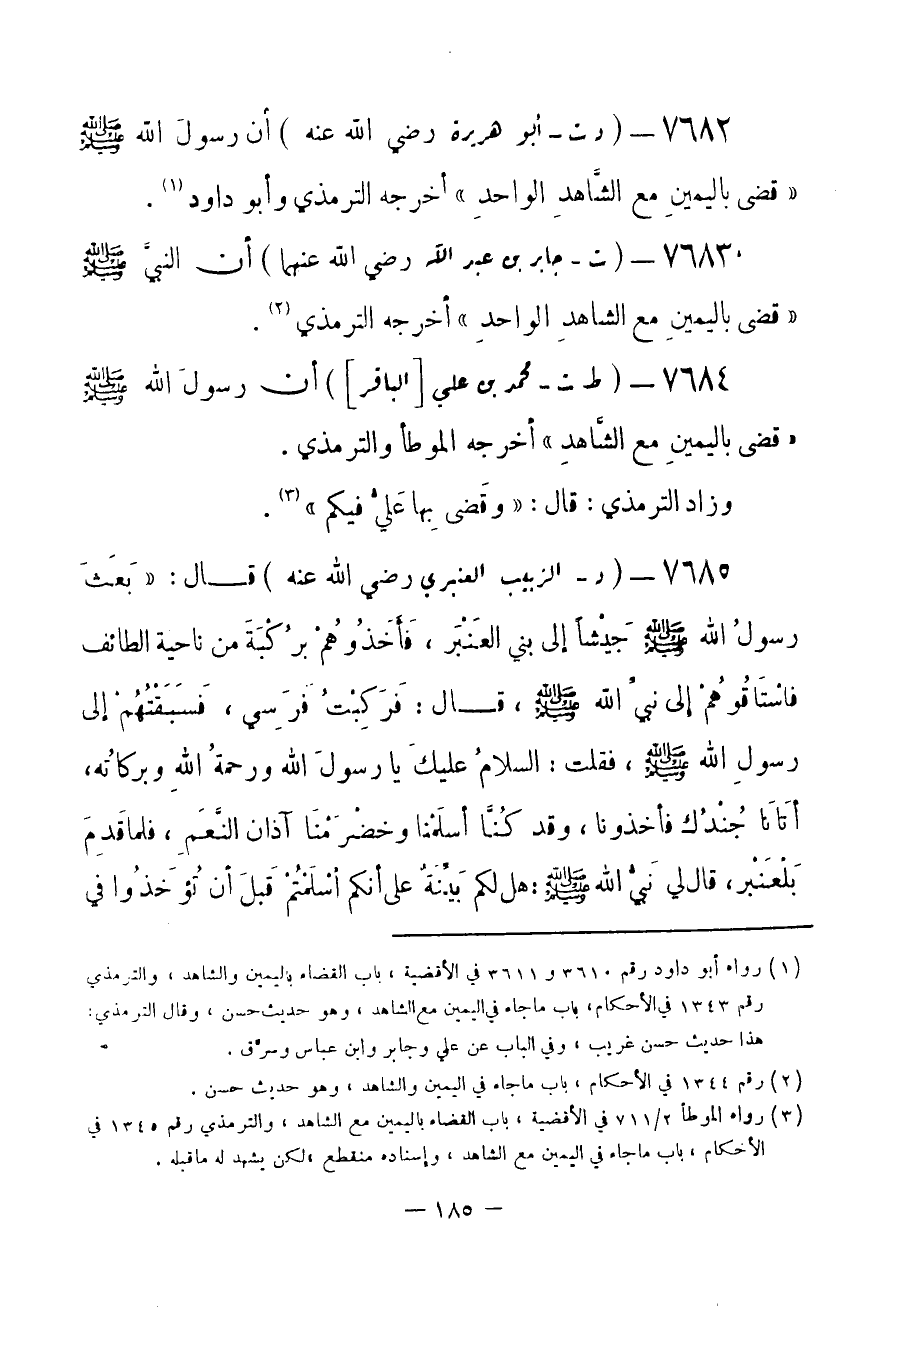 ٧٦٨٢ – ( د ت – أبو هريرة رضي الله عنه ) أن رسولَ الله ﷺ
« قضى باليمينِ مع الشَّاهدِ الواحدِ » أخرجه الترمذي وأبو داود (١) .
٧٦٨٣ – ( ت – جابر بن عبد الله رضي الله عنهما ) أن النبيَّ ﷺ
« قضى باليمينِ مع الشاهدِ الواحدِ » أخرجه الترمذي (٢) .
٧٦٨٤ – ( ط ت – محمد بن علي [ الباقر ] ) أن رسولَ الله ﷺ
« قضى باليمينِ مع الشَّاهدِ » أخرجه الموطأ والترمذي .
وزاد الترمذي : قال : « وقَضى بِها عَليٌّ فيكم » (٣) .
٧٦٨٥ – ( د – الزبيب العنبري رضي الله عنه ) قــال : « بَعثَ
رسولُ الله ﷺ جَيْشاً إلى بني العَنْبَرِ ، فَأَخَذُوهُمْ بِرُكْبَةَ من ناحية الطائف
فاسْتَاقُوهُمْ إلى نبيِّ الله ﷺ ، قــال : فَرَكِبْتُ فَرَسِي ، فَسَبَقْتُهُمْ إلى
رسولِ الله ﷺ ، فقلت : السلامُ عليكَ يا رسولَ الله ورحمةُ اللهِ وبركاتُه،
أتَانَا جُنْدُكَ فأخذونا ، وقد كُنَّا أسلَمْنا وخضْرَمْنَا آذان النَّعَمِ ، فلما قَدِمَ
بَلْعَنْبَر، قال لي نَبيُّ الله ﷺ : هل لكم بَيِّنَةٌ على أنكم أسْلَمْتُمْ قَبلَ أن تُؤخَذُوا في
(١) رواه أبو داود رقم ٣٦١٠ و ٣٦١١ في الأقضية ، باب القضاء باليمين والشاهد ، والترمذي
رقم ١٣٤٣ في الأحكام، باب ما جاء في اليمين مع الشاهد ، وهو حديث حسن ، وقال الترمذي:
هذا حديث حسن غريب ، وفي الباب عن علي وجابر وابن عباس وسرَّق .
(٢) رقم ١٣٤٤ في الأحكام ، باب ما جاء في اليمين والشاهد ، وهو حديث حسن .
(٣) رواه الموطأ ٧١١/٢ في الأقضية ، باب القضاء باليمين مع الشاهد ، والترمذي رقم ١٣٤٥ في
الأحكام ، باب ما جاء في اليمين مع الشاهد ، وإسناده منقطع ، لكن يشهد له ما قبله .
– ١٨٥ –